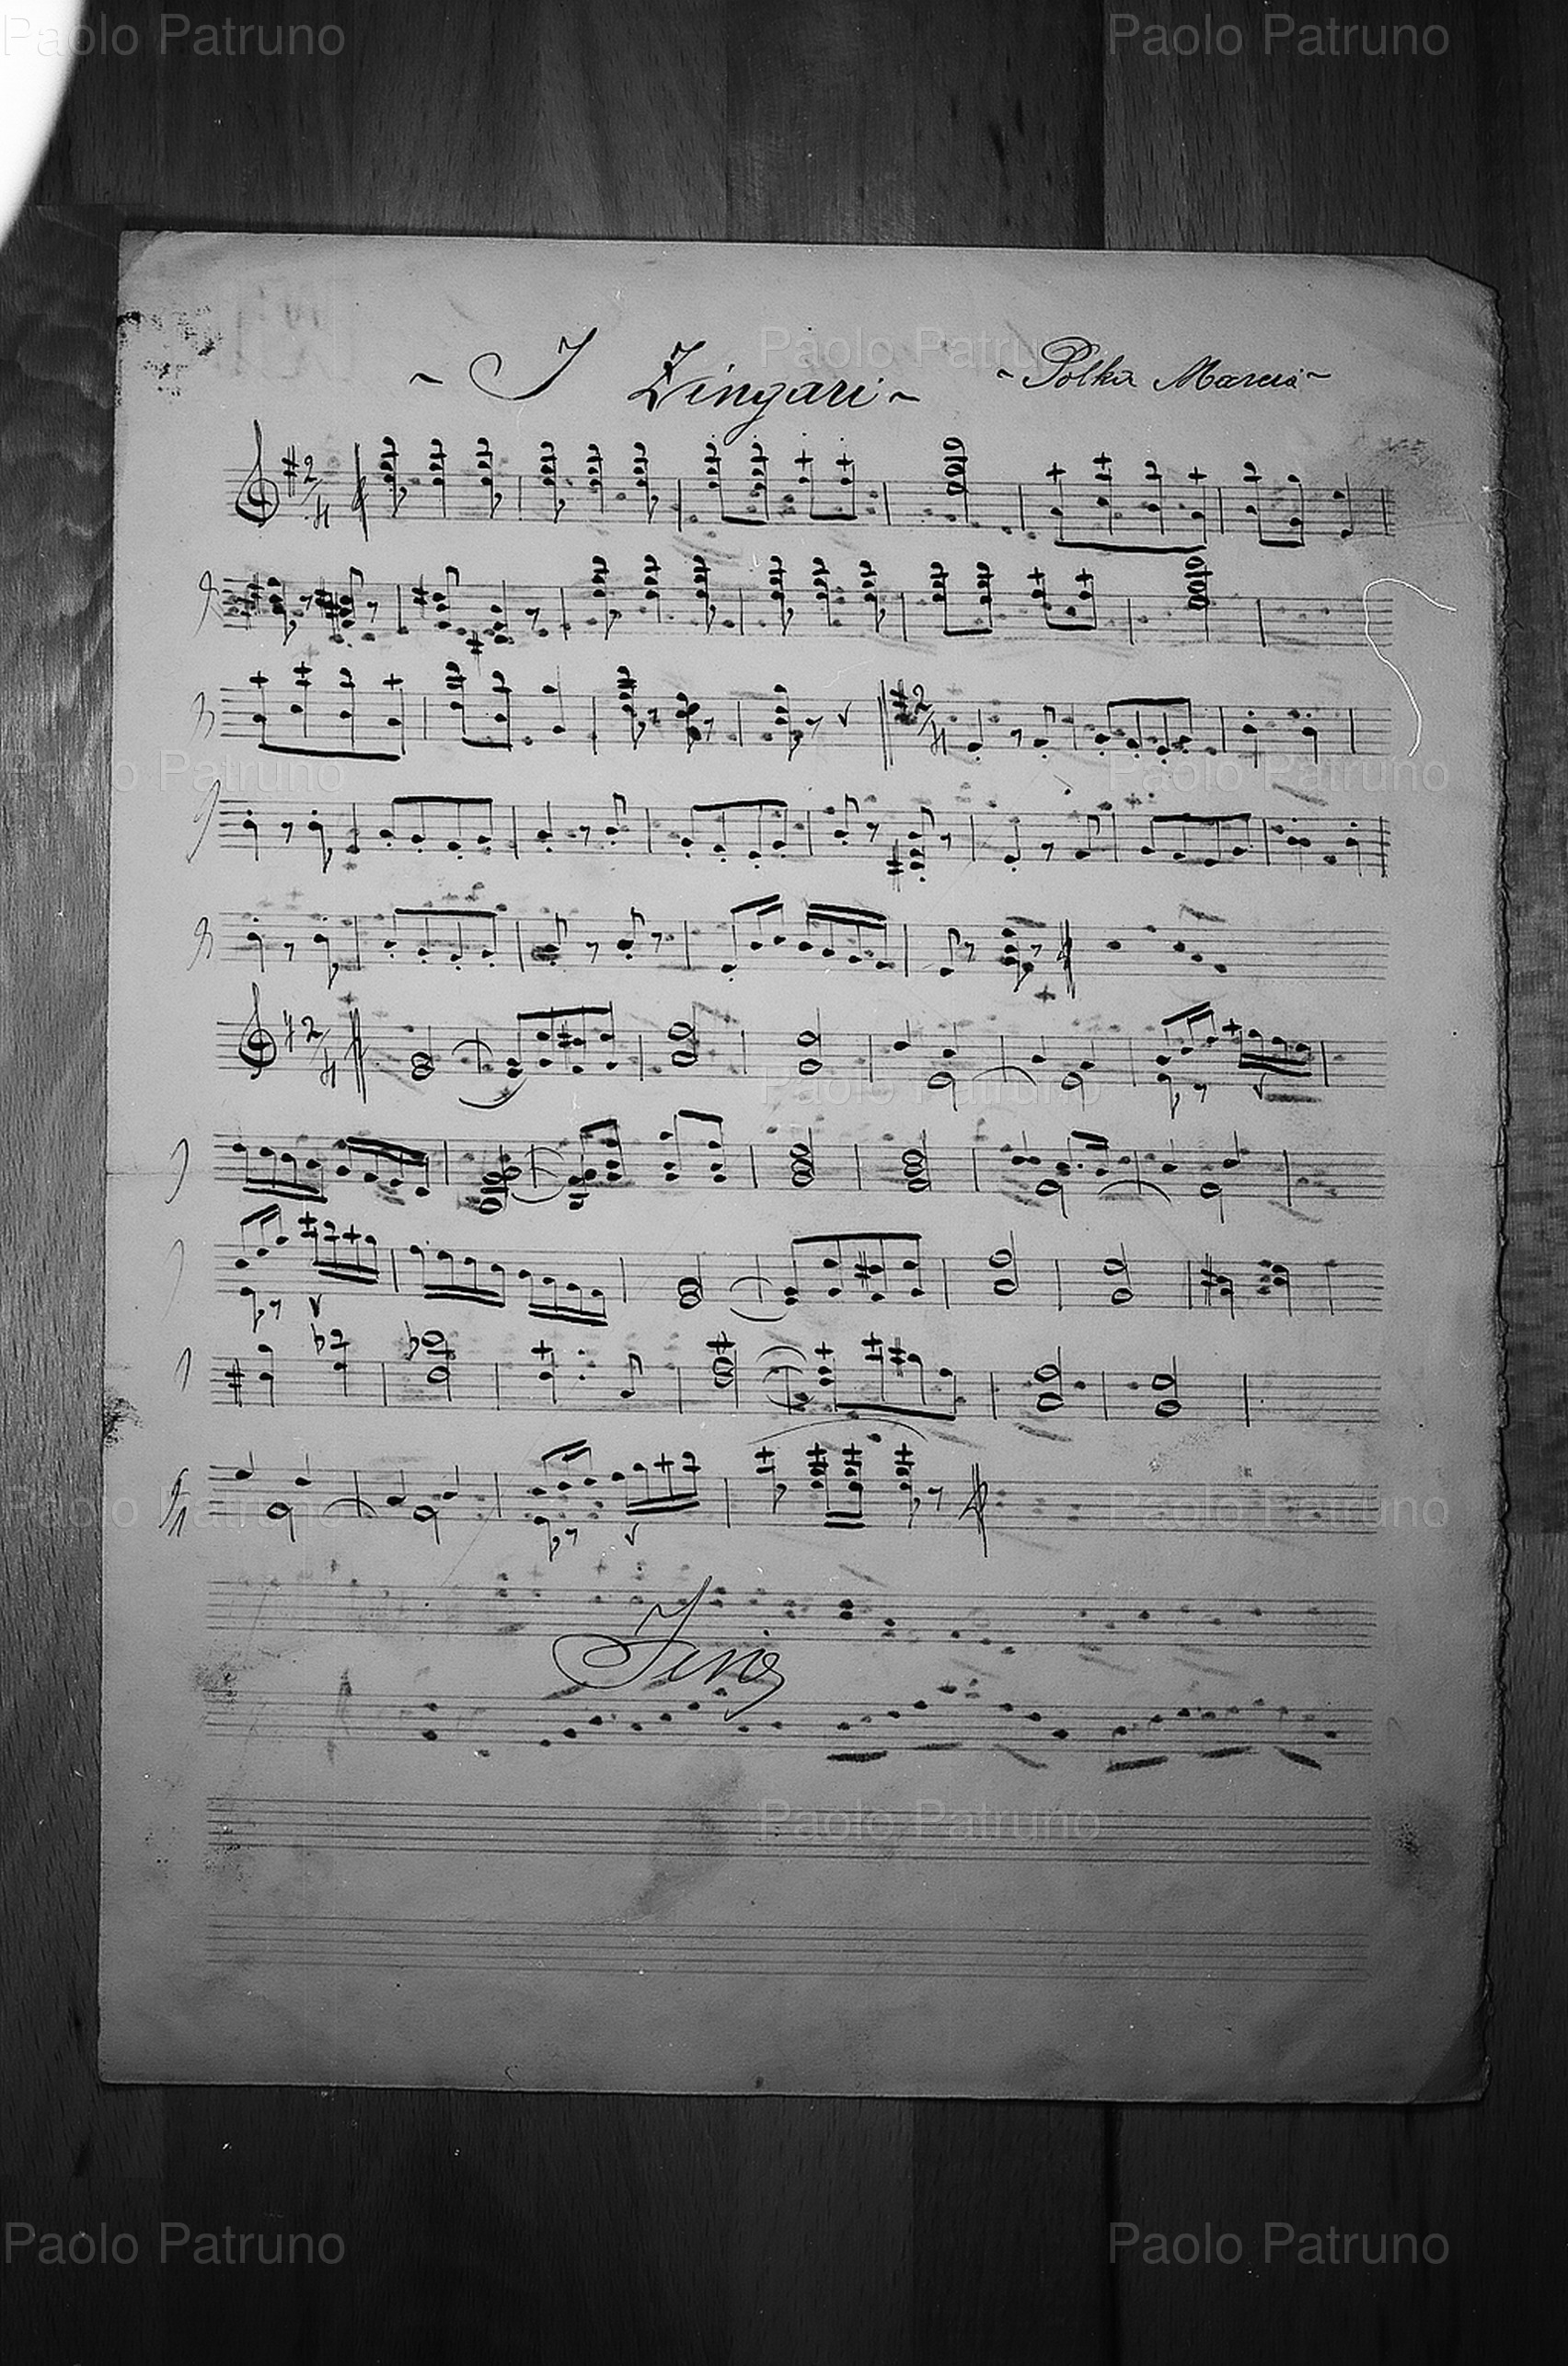 Paolo Patruno Paolo Patruno
Paolo Patruno
~ I Zingari ~ ~ Polka Marcia ~
2/4
2/4
Paolo Patruno Paolo Patruno
2/4
Paolo Patruno
Paolo Patruno Paolo Patruno
Fine
Paolo Patruno
Paolo Patruno Paolo Patruno